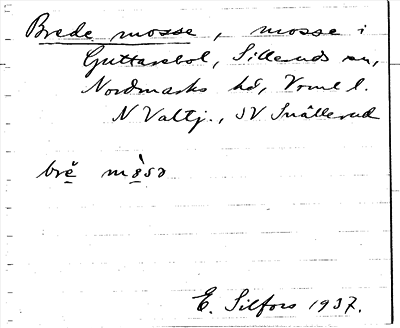 Brede mosse, mosse i
Guttarsbol, Sillerud sn,
Nordmarks hd, Vrml l.
N Valtj., SV Snällerud
brĕ mò̀sə
E. Silfors 1937.